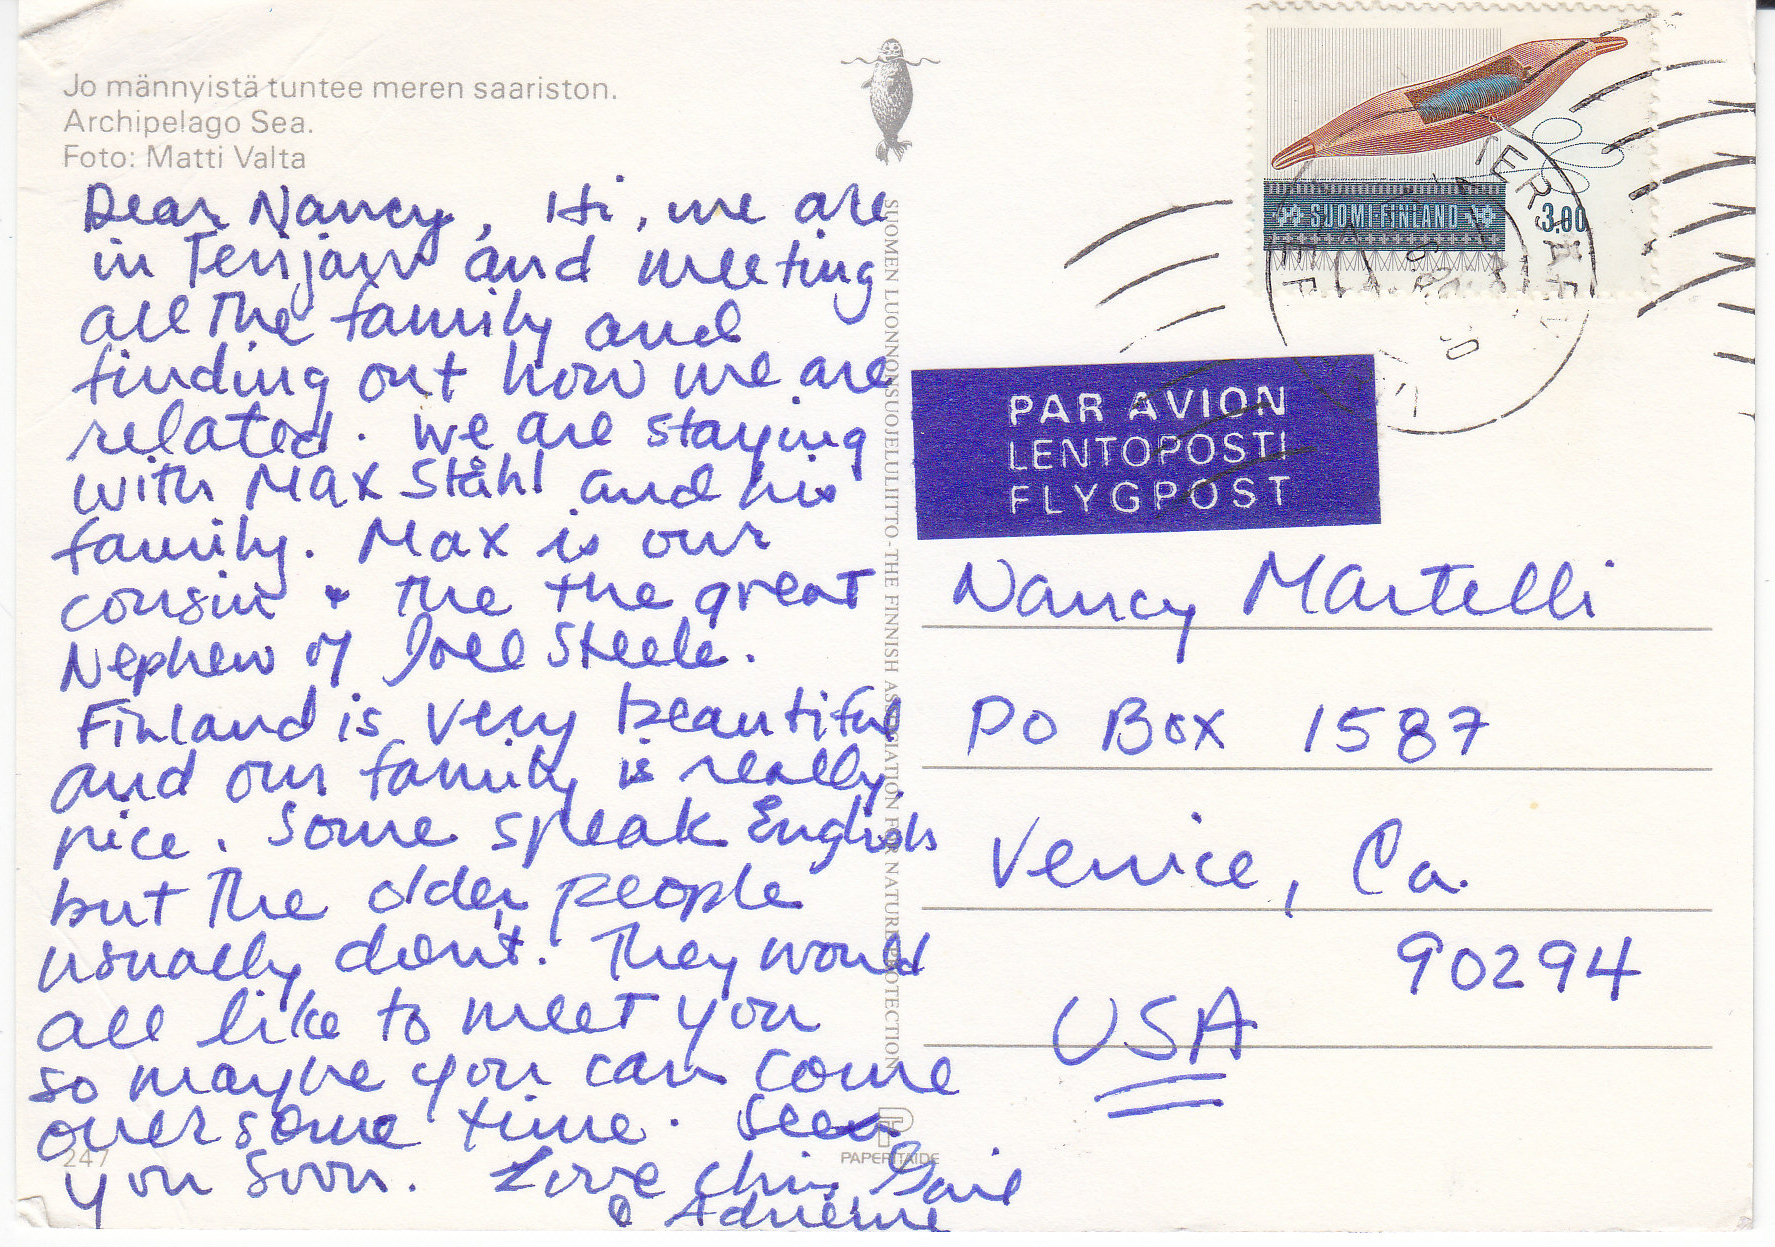 Jo männyistä tuntee meren saariston.
Archipelago Sea.
Foto: Matti Valta
Dear Nancy, Hi, we are
in Terijarv and meeting
all the family and
finding out how we are
related. We are staying
with Max Ståhl and his
family. Max is our
cousin + the the great
Nephew of Joel Steele.
Finland is very beautiful
and our family is really
nice. Some speak English
but the older people
usually don't. They would
all like to meet you
so maybe you can come
over some time. Seen
you soon. Love Chris, Gail
& Adrienne
247
SUOMEN LUONNONSUOJELULIITTO - THE FINNISH ASSOCIATION FOR NATURE PROTECTION
PAPERITAIDE
SUOMI-FINLAND
3,00
PAR AVION
LENTOPOSTI
FLYGPOST
Nancy Martelli
PO Box 1587
Venice, Ca.
90294
USA